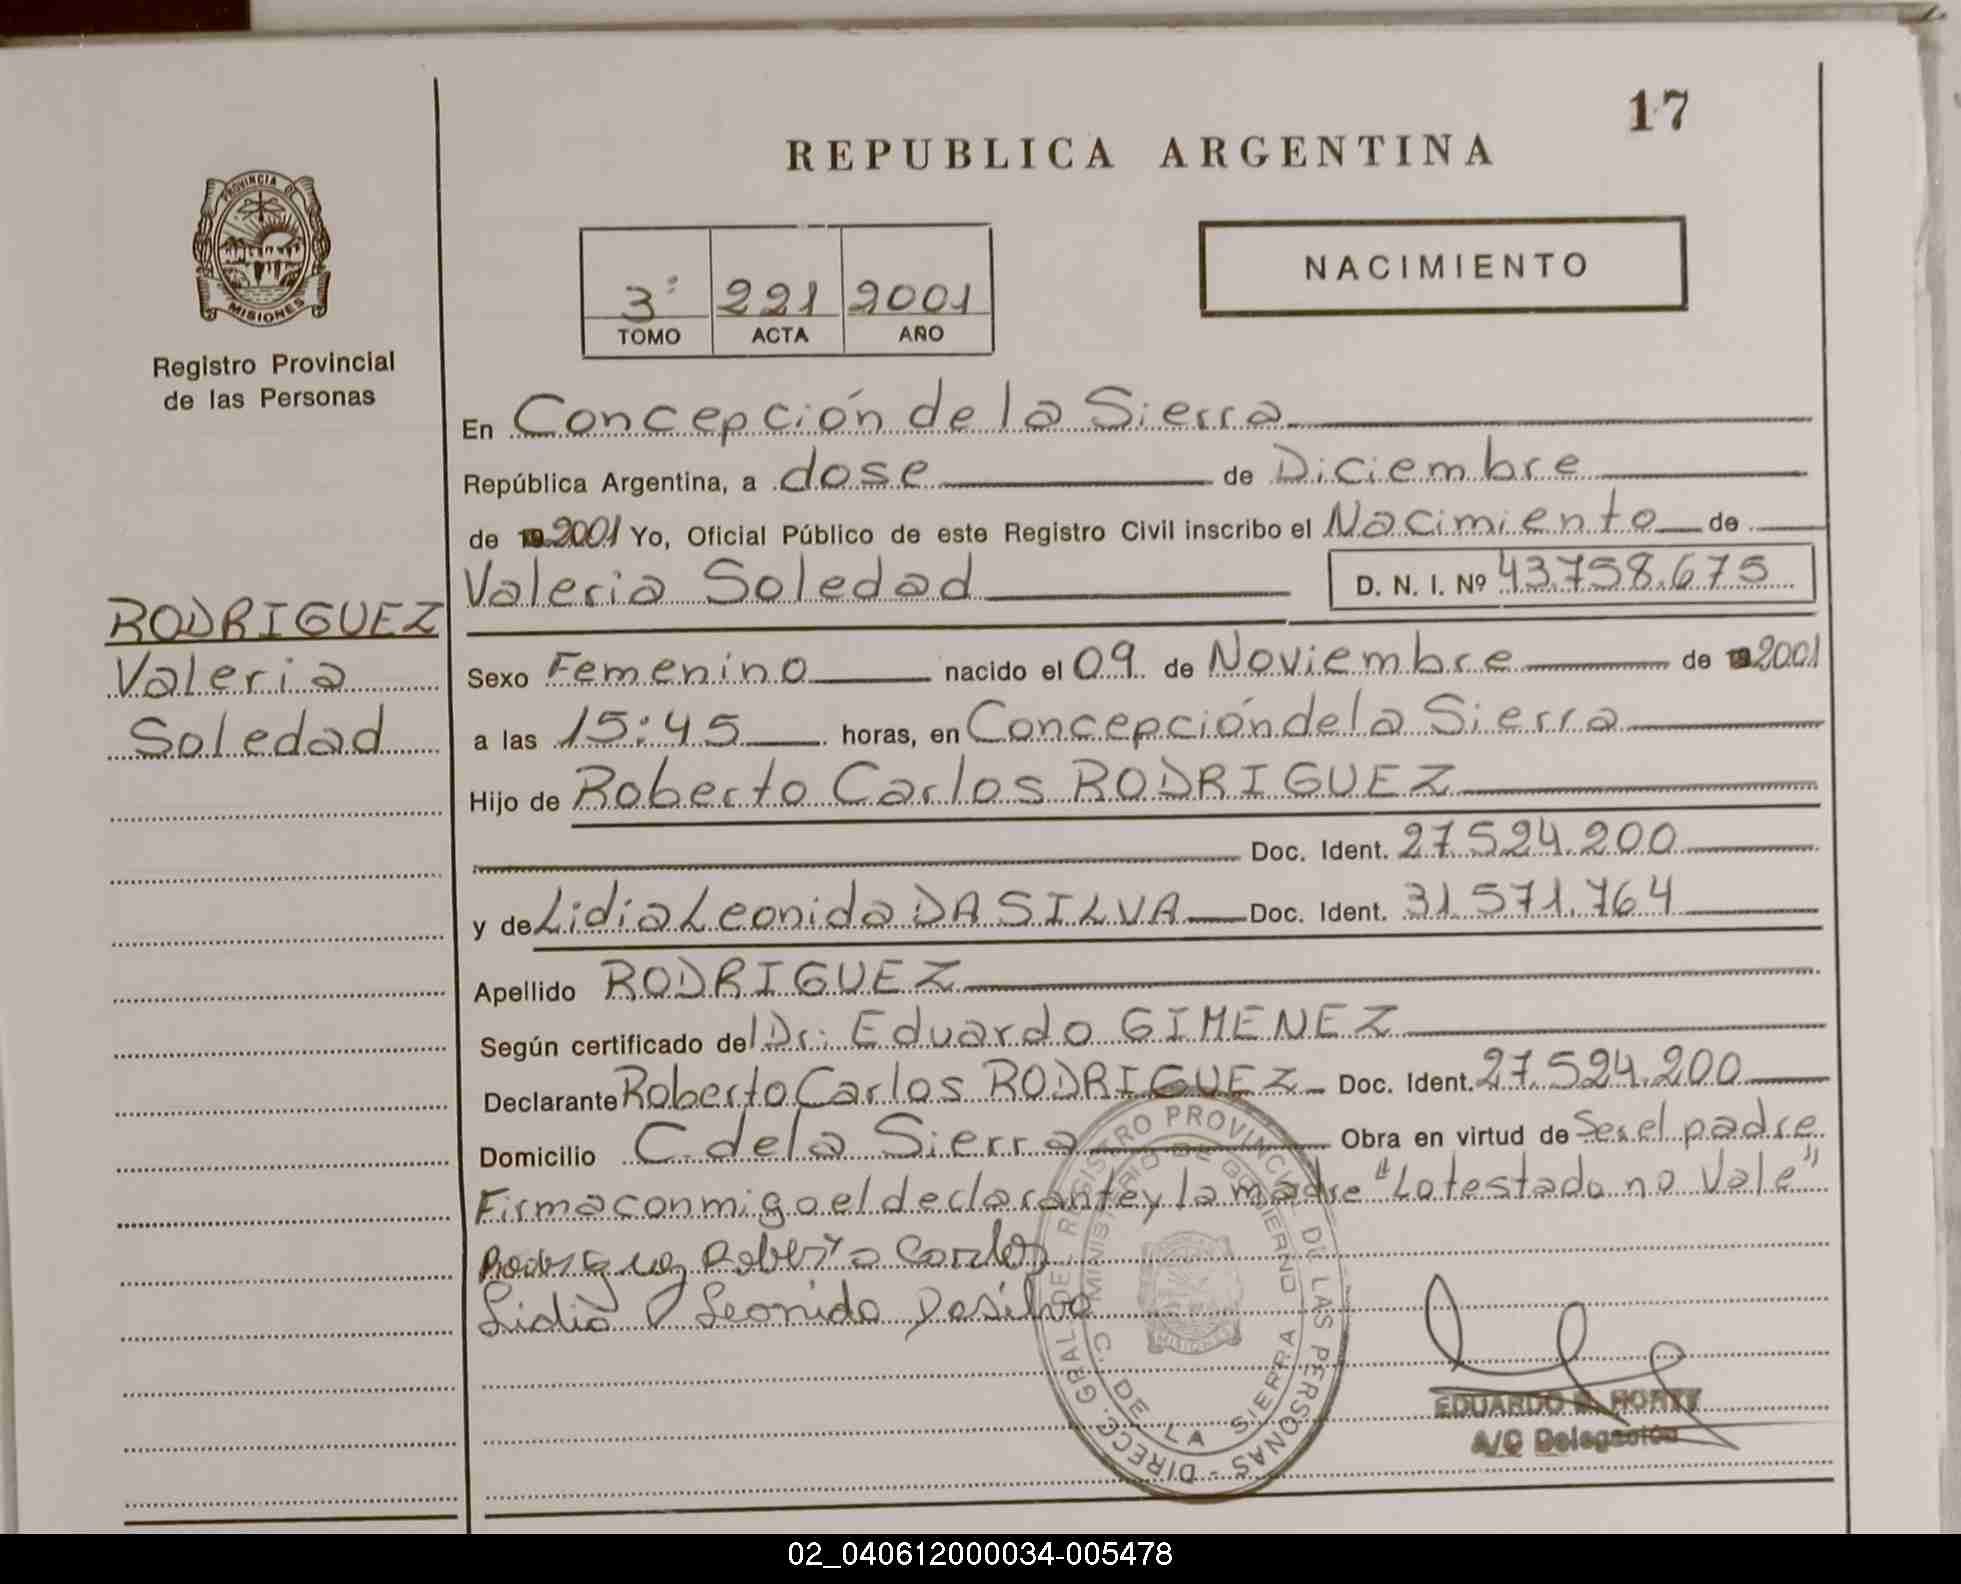 17
REPUBLICA ARGENTINA
PROVINCIA DE
MISIONES
Registro Provincial
de las Personas
3º 221 2001
TOMO ACTA AÑO
NACIMIENTO
En Concepción de la Sierra
República Argentina, a dose de Diciembre
de 19 2001 Yo, Oficial Público de este Registro Civil inscribo el Nacimiento de
Valeria Soledad D. N. I. Nº 43.758.675
RODRIGUEZ
Valeria
Soledad
Sexo Femenino nacido el 09 de Noviembre de 2001
a las 15:45 horas, en Concepción de la Sierra
Hijo de Roberto Carlos RODRIGUEZ
Doc. Ident. 27.524.200
y de Lidia Leonida DA SILVA Doc. Ident. 31.571.764
Apellido RODRIGUEZ
Según certificado del Dr. Eduardo GIMENEZ
Declarante Roberto Carlos RODRIGUEZ Doc. Ident. 27.524.200
Domicilio C. de la Sierra Obra en virtud de Ser el padre
Firma conmigo el declarante y la madre "Lo testado no Vale"
Rodriguez Roberto Carlos
Lidia Leonida Dasilva
DIRECC. GRAL DE REGISTRO PROVINCIAL DE LAS PERSONAS -
MINISTERIO DE GOBIERNO
C. DE LA SIERRA
MISIONES
EDUARDO
A/C Delegación
02_040612000034-005478